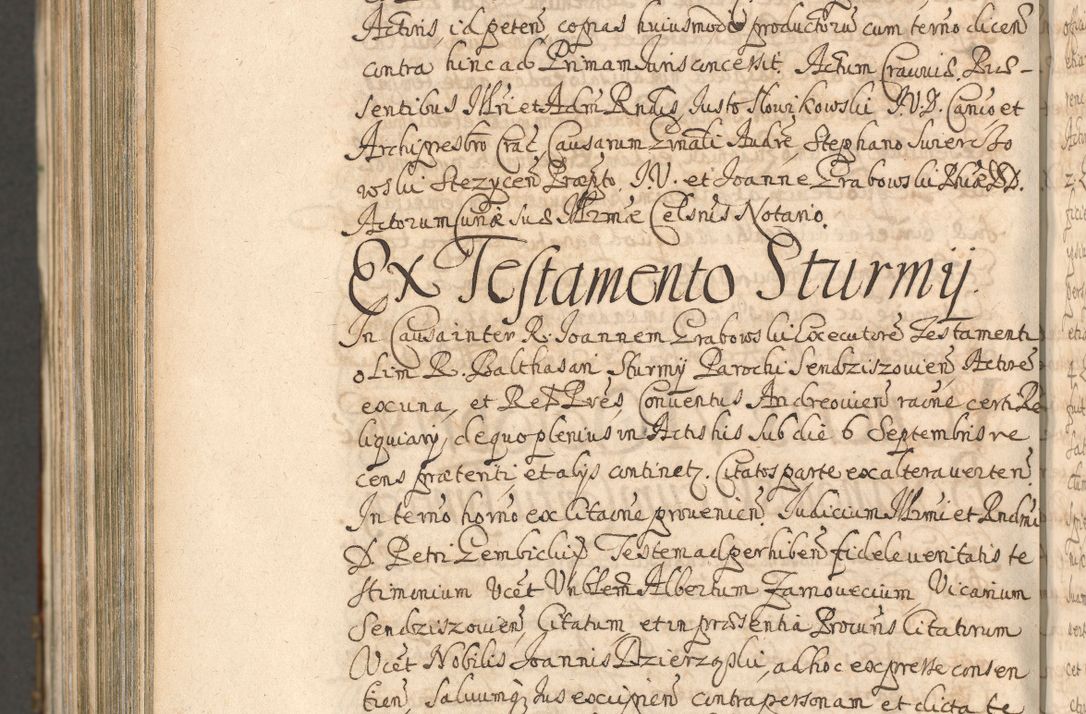 Actoris, id peteñ, copias huiusmodi productorũ cum termo diceñ
contra hinc ad Primam Juris concessit. Actum Cracouiæ. Præ-
sentibus Illri et Adm Rndis, Justo Slowikowski J.V.D. Canico et
Archipresbro Crac, Causarum Grnãli Audre, Stephano Swiercżo
wski Stezyceñ Præpto, J.V. et Joanne Grabowski
Actorum Curiæ suæ Illrmæ Celsnis Notario.
Ex Testamento Sturmÿ.
In Causa inter R. Joannem Grabowski Executore Testamenti
olim R. Balthasari Sturmÿ Parochi Sendziszouieñ, Actore
ex una, et Rdẽ Pres, Conuentus Andreouieñ raõne certi Re
liquiarÿ, de quo plenius in Actis his sub die 6 Septembris re
cens prætenti, et alÿs continetz. Citatos parte ex altera uerteñ
In termo horno ex Citaõne proueñien. Judicium Illrmi et Rndmi
D. Petri Gembicki Testem ad perhibeñ fidele ueritatis te
stimonium Vcet Vnblem Albertum Zarnouecium, Vicarium
Sendziszouieñ, Citatum et in præsentia Procuris Citatorum
Vcet Nobilis Joannis Dzierzgski, ad hoc expresse consen
tieñ, saluumq; Jus excipieñ contra personam et dicta te